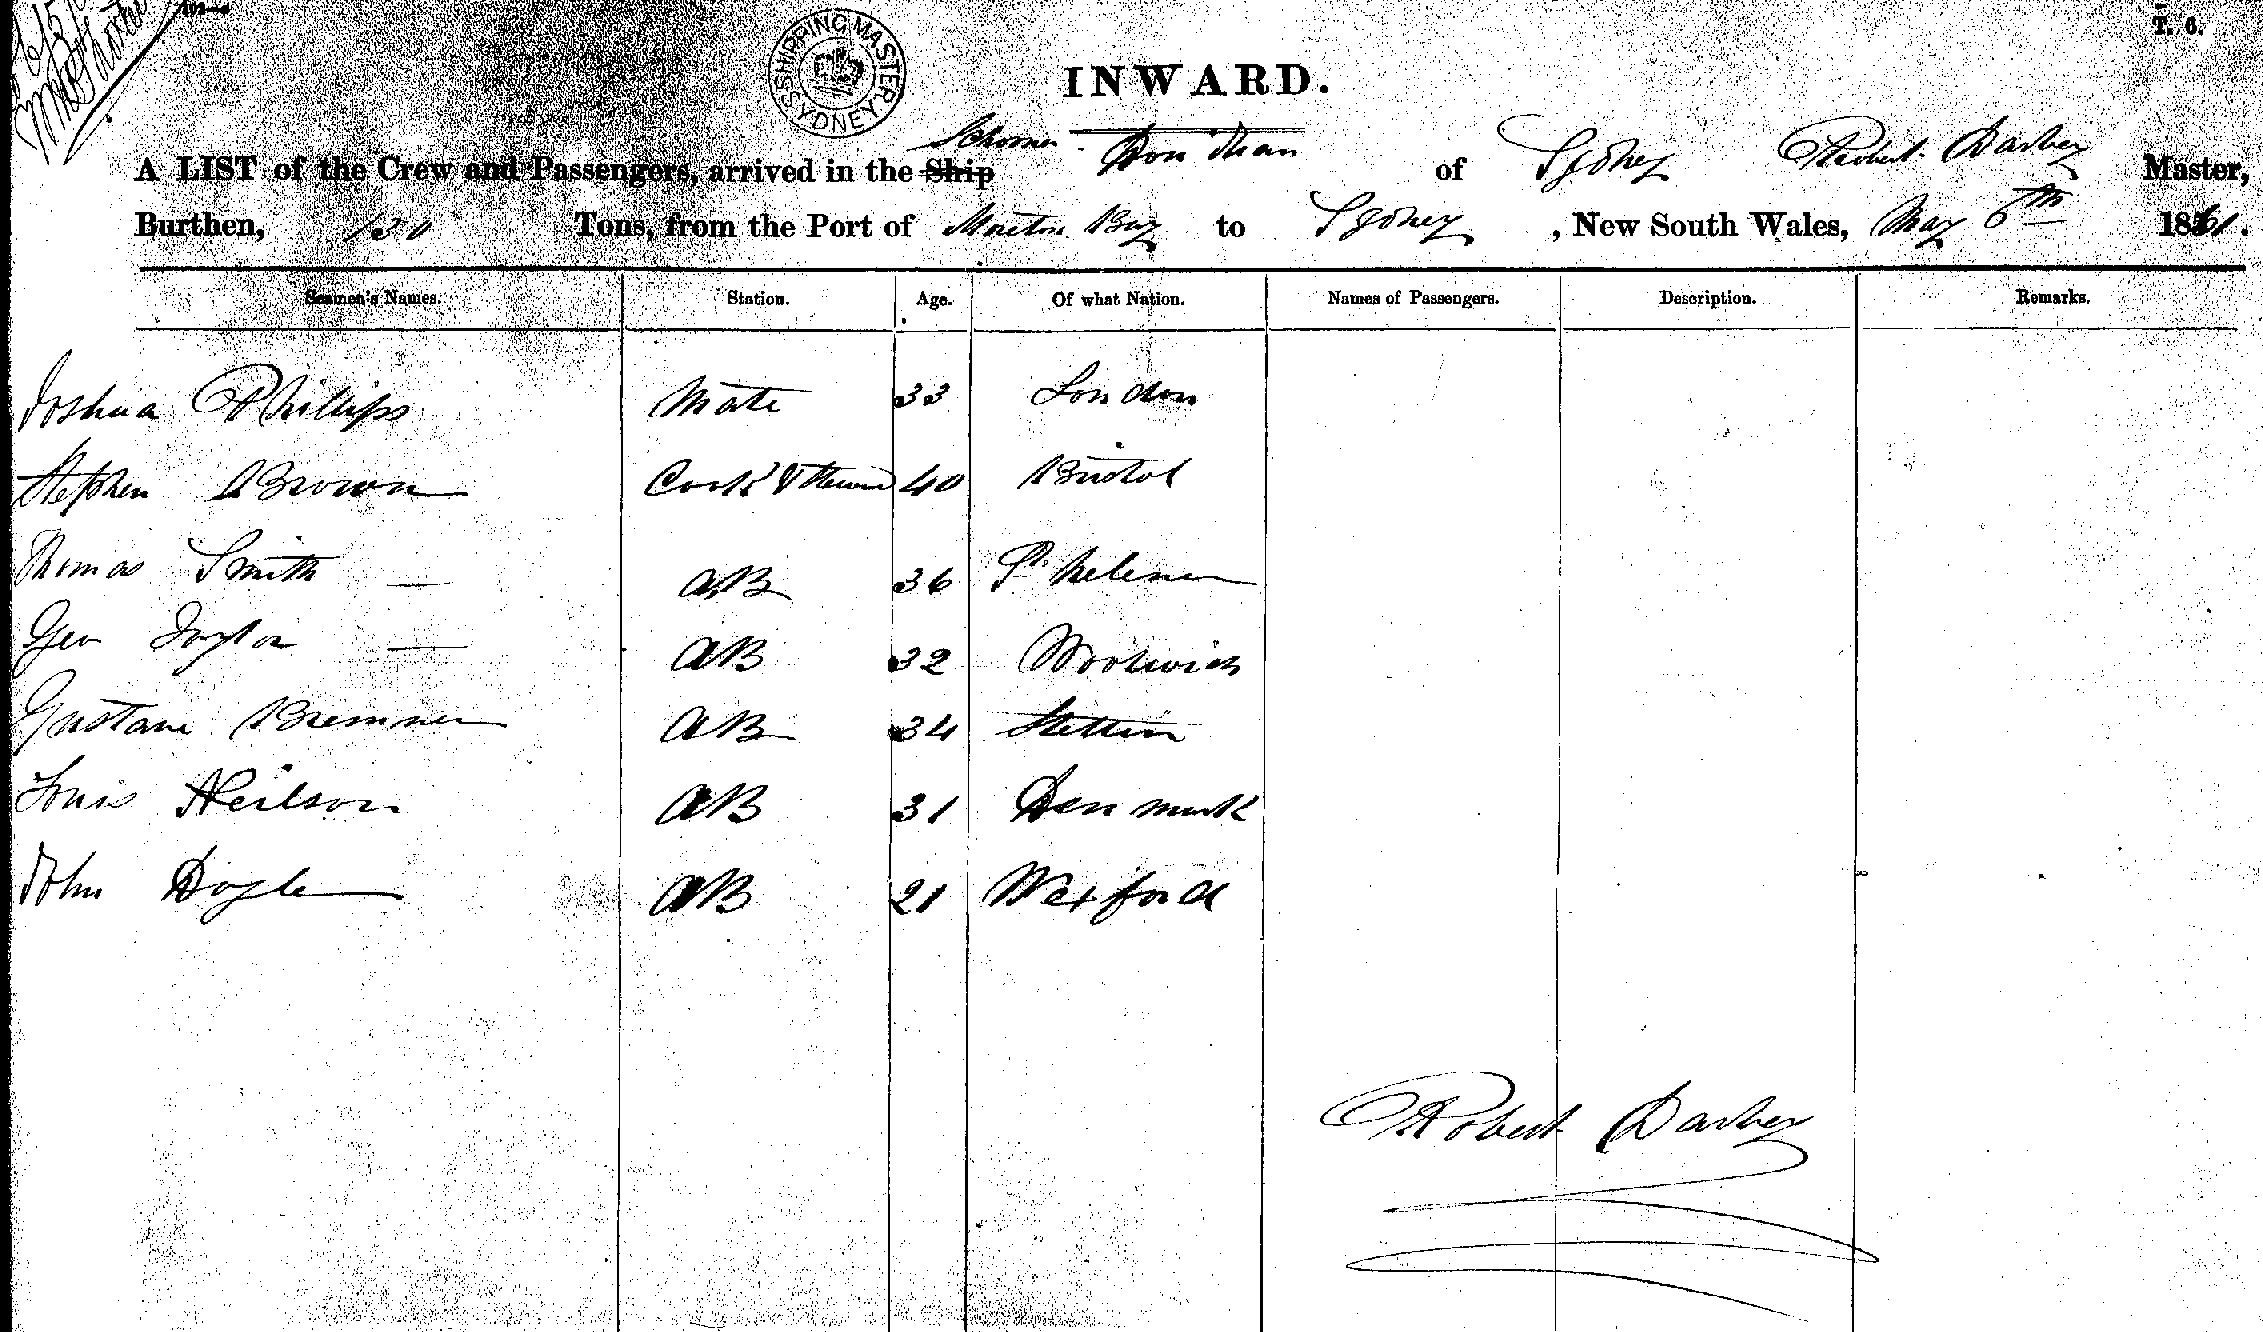 T. 6.
SHIPPING MASTER SYDNEY
INWARD.
A LIST of the Crew and Passengers, arrived in the Ship Schooner Don Juan of Sydney Robert Darbey Master,
Burthen, 130 Tons, from the Port of Moreton Bay to Sydney, New South Wales, May 6th 1861.
Seamen's Names. Station. Age. Of what Nation. Names of Passengers. Description. Remarks.
Joshua Phillips Mate 33 London
Stephen Brown Cook & Steward 40 Bristol
Thomas Smith — AB 36 St helena
Geo — AB 32 Woolwich
Gustave Bremner AB 34 Stettin
Louis Neilson AB 31 Denmark
John Doyle AB 21 Wexford
Robert Darbey